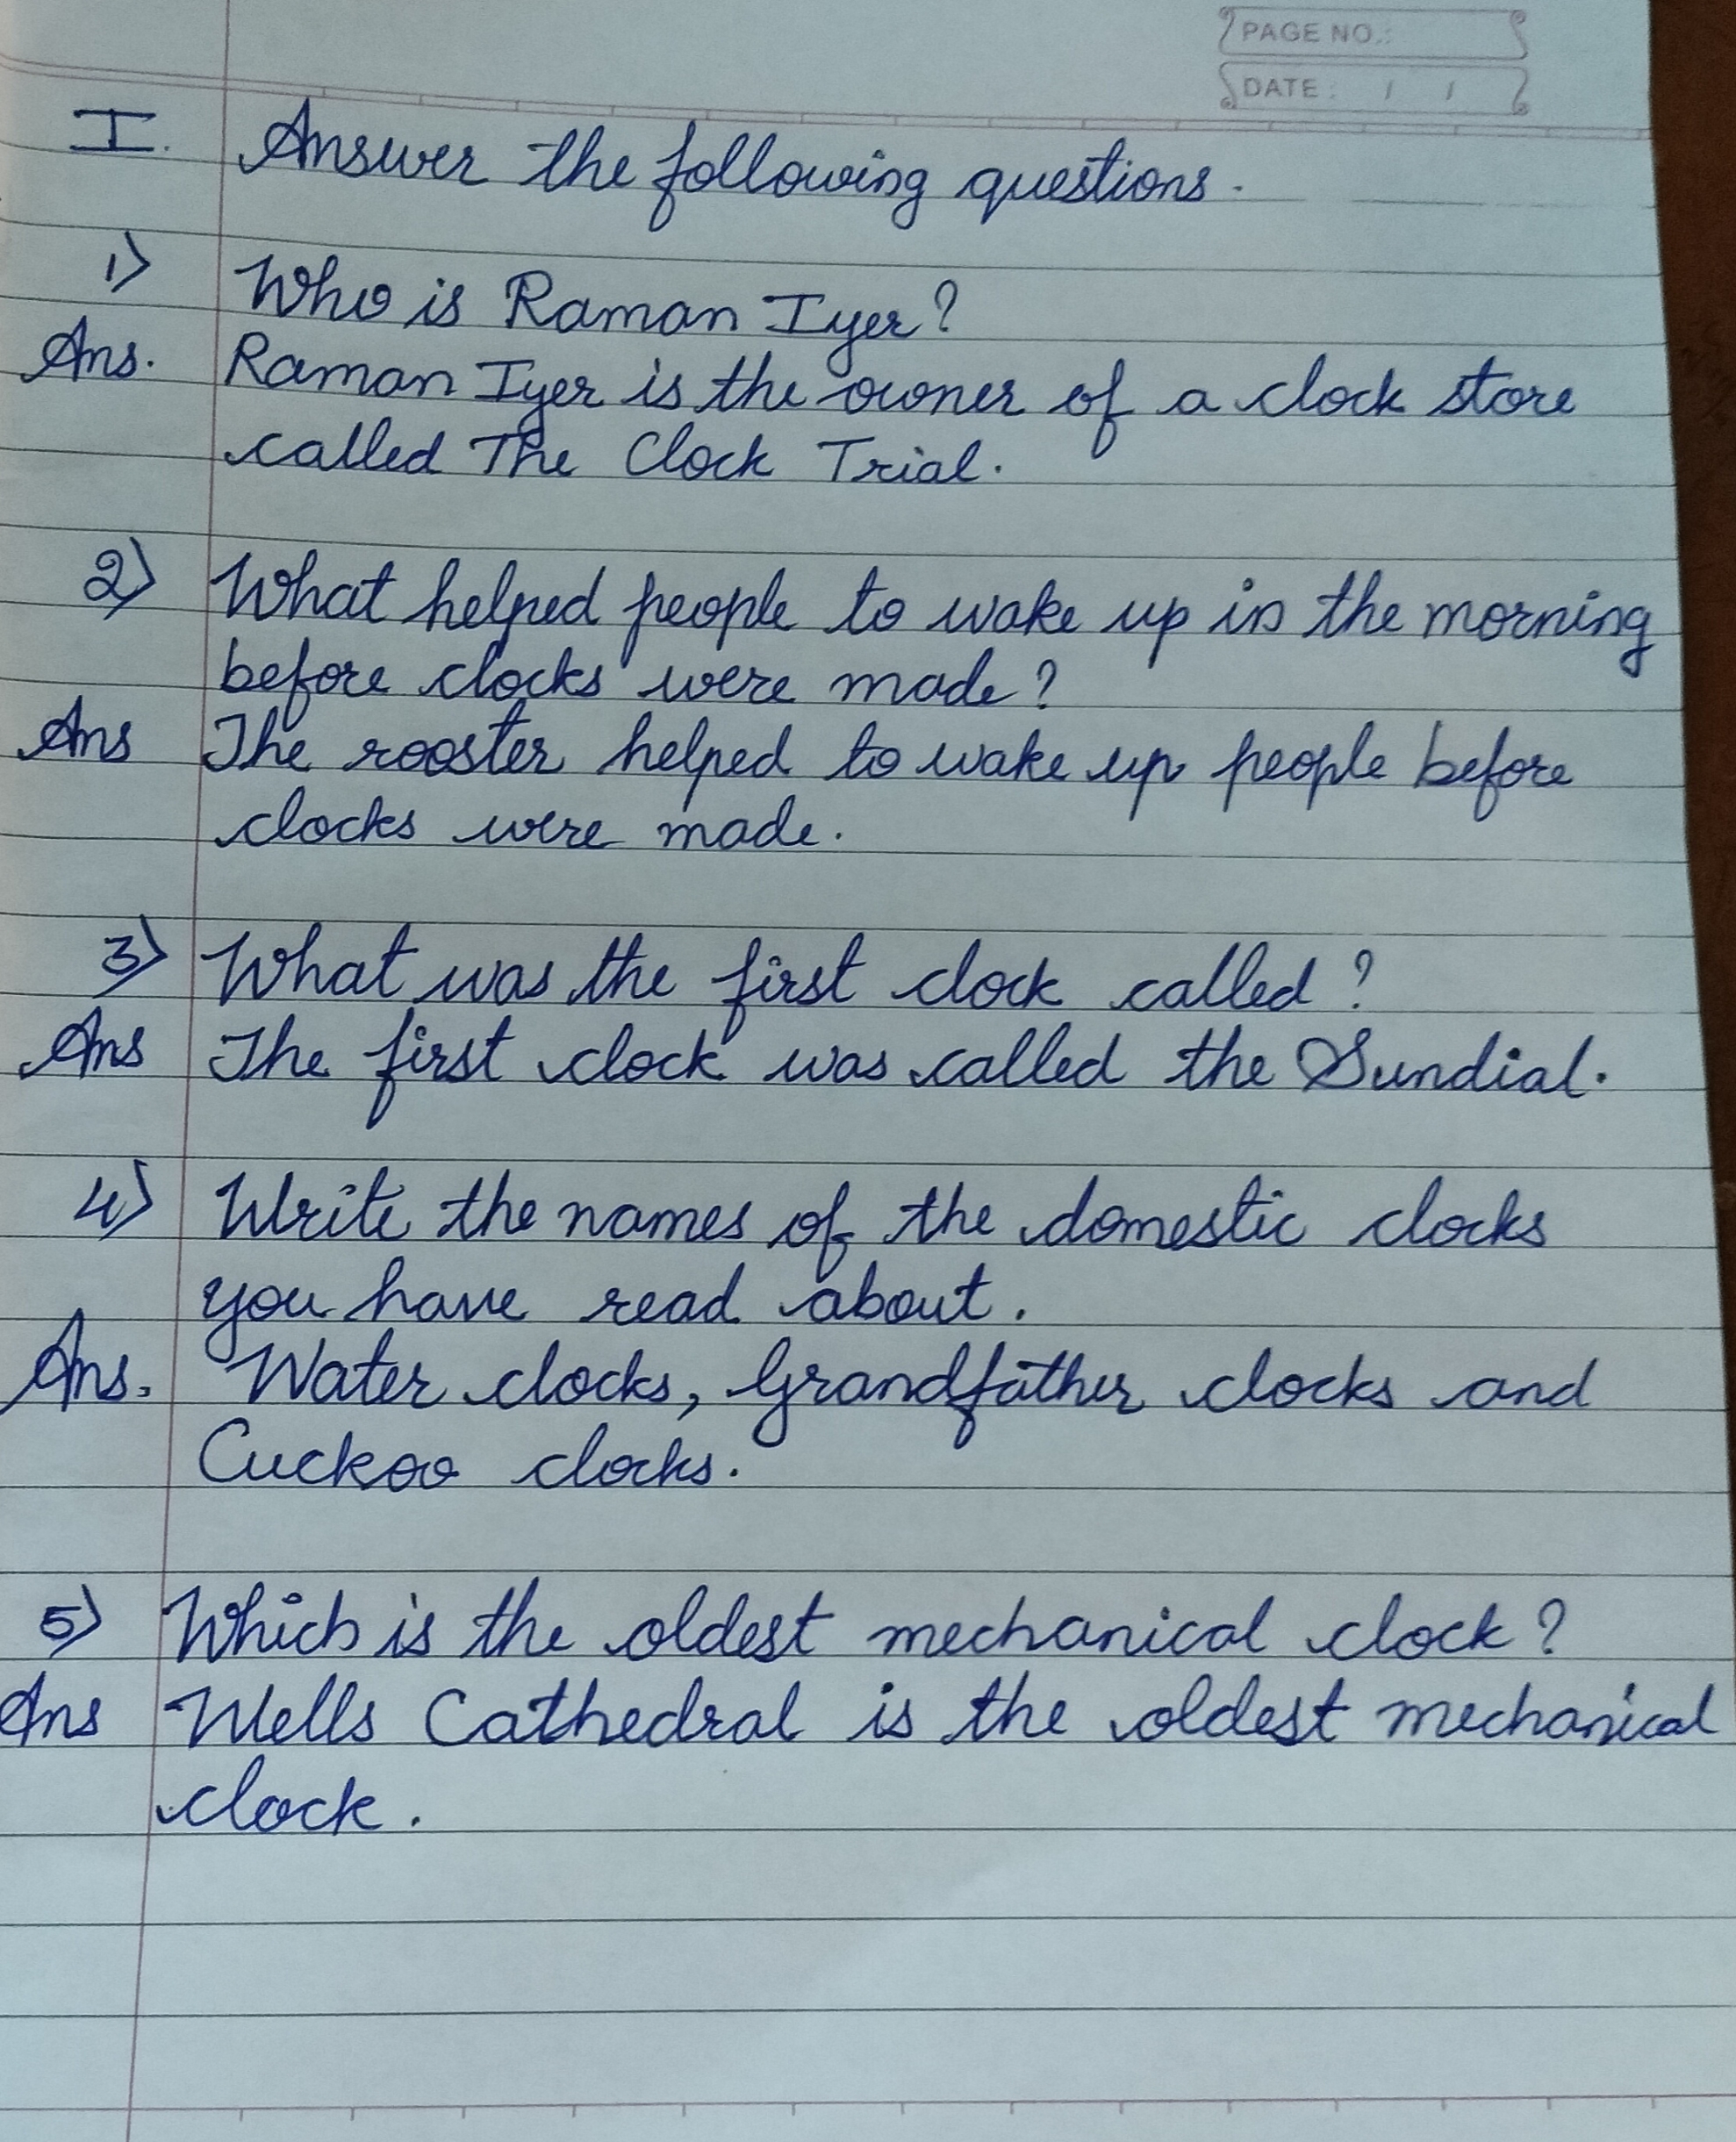 PAGE NO.:
DATE: / /
I. Answer the following questions.
1) Who is Raman Iyer?
Ans. Raman Iyer is the owner of a clock store
called The Clock Trial.
2) What helped people to wake up in the morning
before clocks were made?
Ans The rooster helped to wake up people before
clocks were made.
3) What was the first clock called?
Ans The first clock was called the Sundial.
4) Write the names of the domestic clocks
you have read about.
Ans. Water clocks, Grandfather clocks and
Cuckoo clocks.
5) Which is the oldest mechanical clock?
Ans Wells Cathedral is the oldest mechanical
clock.